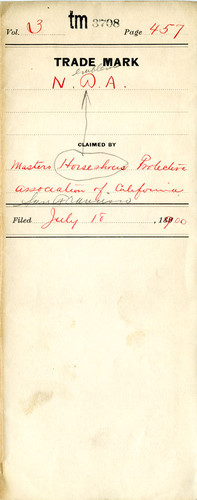 Vol. 3 tm 3708 Page 457
TRADE MARK
emblem
N. D. A.
CLAIMED BY
Masters Horseshoers Protective
Association of California
San Francisco
Filed July 18, 1900